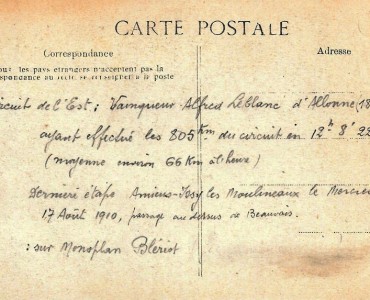 CARTE POSTALE
Correspondance
Adresse
Tous les pays étrangers n'acceptent pas la
correspondance au
la poste
Circuit de l'Est : Vainqueur Alfred Leblanc d'Allonne 18
ayant effectué les 805 Km du circuit en 12h 8' 22
(moyenne environ 66 Km à l'heure)
Dernière étape Amiens-Issy les Moulineaux le Mercre
17 Août 1910, passage au dessus de Beauvais.
: sur Monoplan Blériot